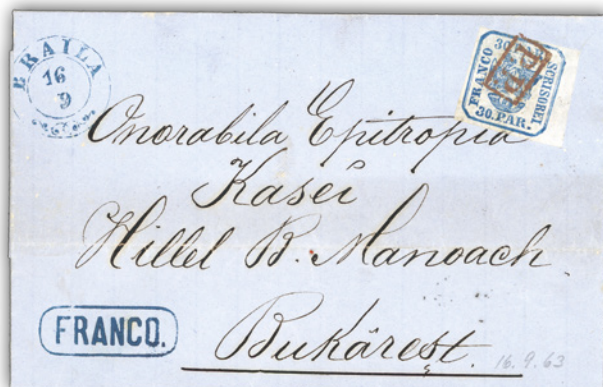 BRAILA
16
9
30 PAR.
FRANCO
SCRISOREI
30. PAR.
P.P.
Onorabila Epitropia
Kasei
Hillel B. Manoach
Bukarest.
FRANCO.
16.9.63